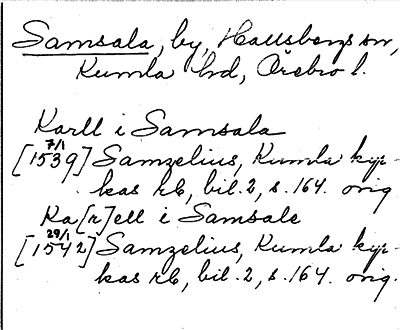 Samsala, by, Hallsbergs sn,
Kumla hd, Örebro l.
Karll i Samsala
7/1
[1539] Samzelius, Kumla kyr-
kas rb, bil. 2, s. 164. orig
Ka[r]ell i Samsale
29/1
[1542] Samzelius, Kumla kyr-
kas rb, bil. 2, s. 164. orig.